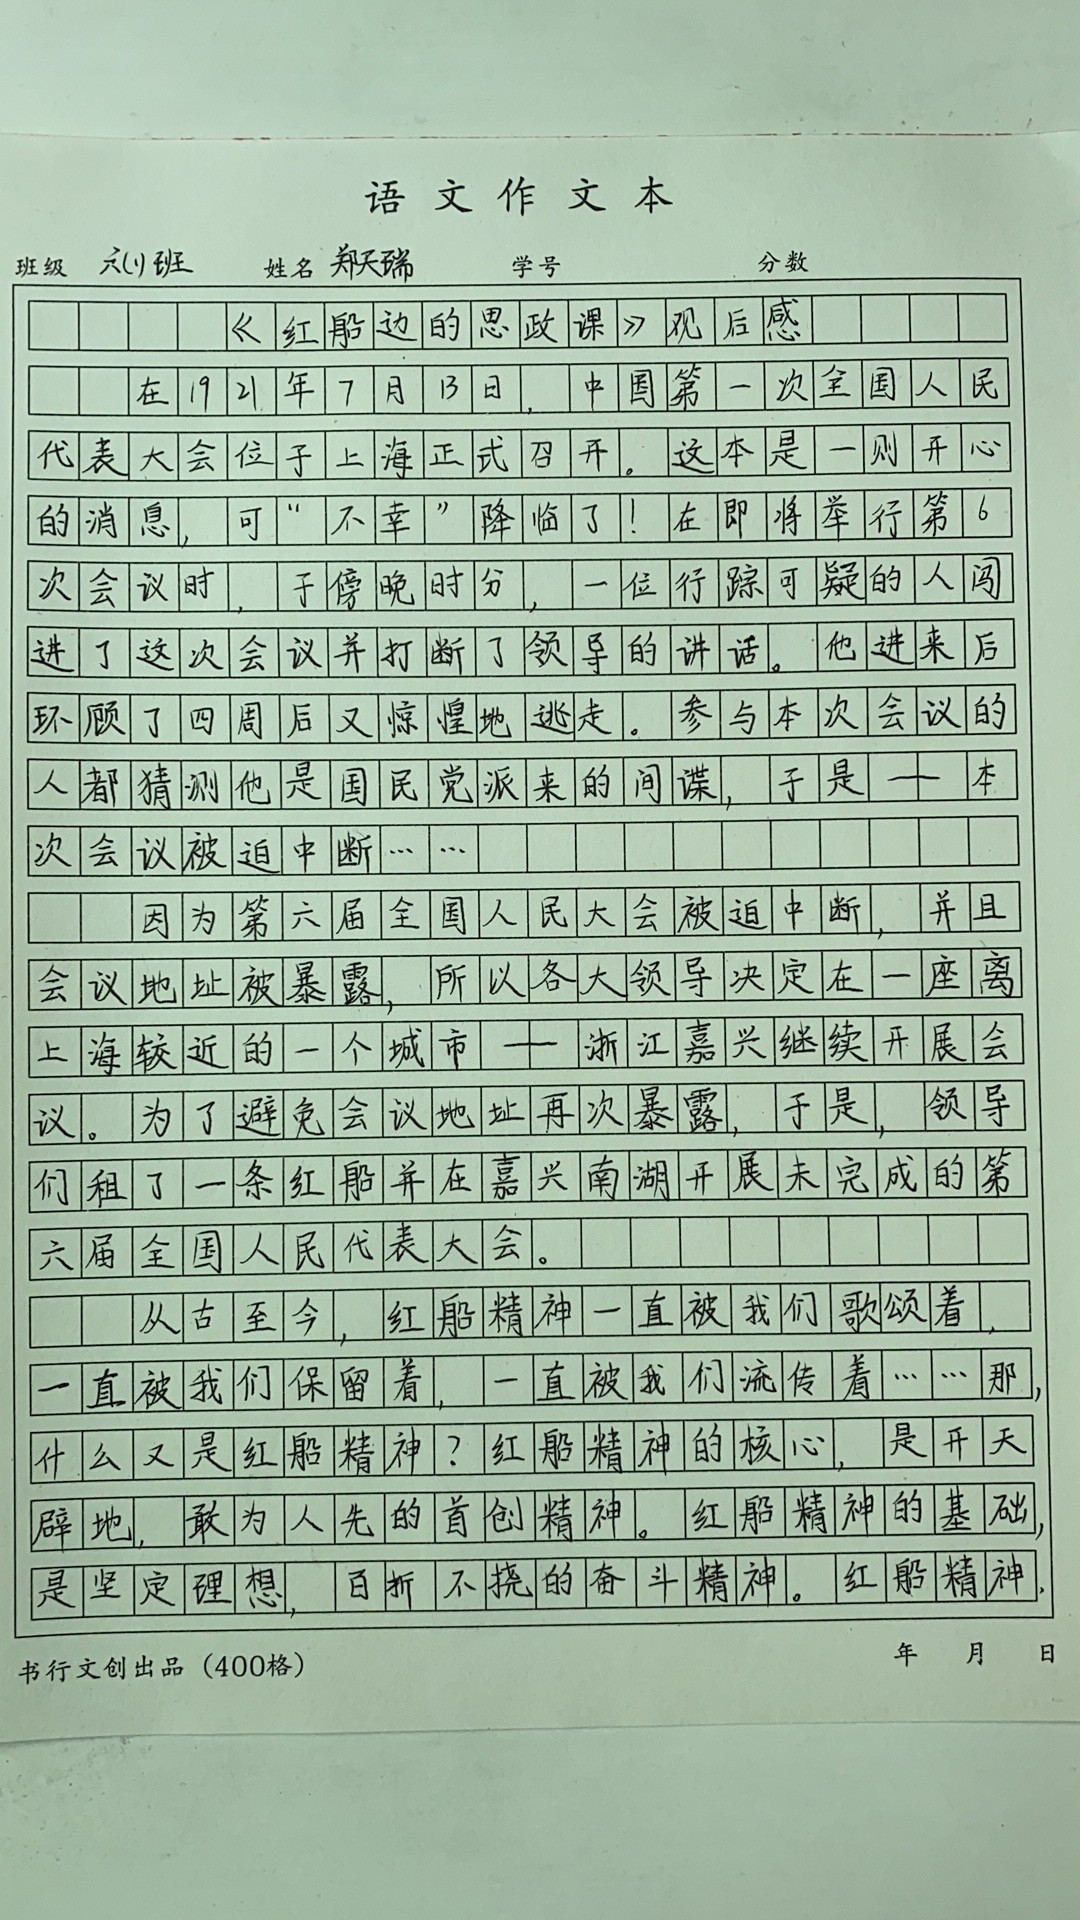 语文作文本
班级 六(1)班 姓名 郑天瑞 学号 分数
《红船边的思政课》观后感
在1921年7月13日，中国第一次全国人民
代表大会位于上海正式召开。这本是一则开心
的消息，可“不幸”降临了！在即将举行第6
次会议时，于傍晚时分，一位行踪可疑的人闯
进了这次会议并打断了领导的讲话。他进来后
环顾了四周后又惊惶地逃走。参与本次会议的
人都猜测他是国民党派来的间谍，于是——本
次会议被迫中断……
因为第六届全国人民大会被迫中断，并且
会议地址被暴露，所以各大领导决定在一座离
上海较近的一个城市——浙江嘉兴继续开展会
议。为了避免会议地址再次暴露，于是，领导
们租了一条红船并在嘉兴南湖开展未完成的第
六届全国人民代表大会。
从古至今，红船精神一直被我们歌颂着，
一直被我们保留着，一直被我们流传着……那，
什么又是红船精神？红船精神的核心，是开天
辟地，敢为人先的首创精神。红船精神的基础，
是坚定理想，百折不挠的奋斗精神。红船精神，
书行文创出品（400格） 年 月 日